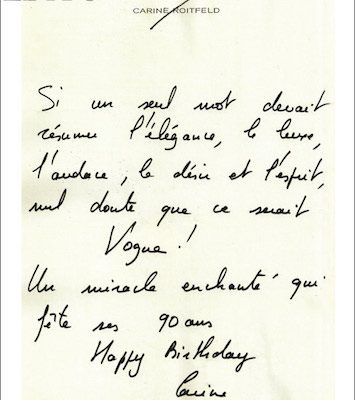 CARINE ROITFELD
Si un seul mot devait
résumer l'élégance, le luxe,
l'audace, le désir et l'esprit,
nul doute que ce serait
Vogue !
Un miracle enchanté qui
fête ses 90 ans
Happy Birthday
Carine